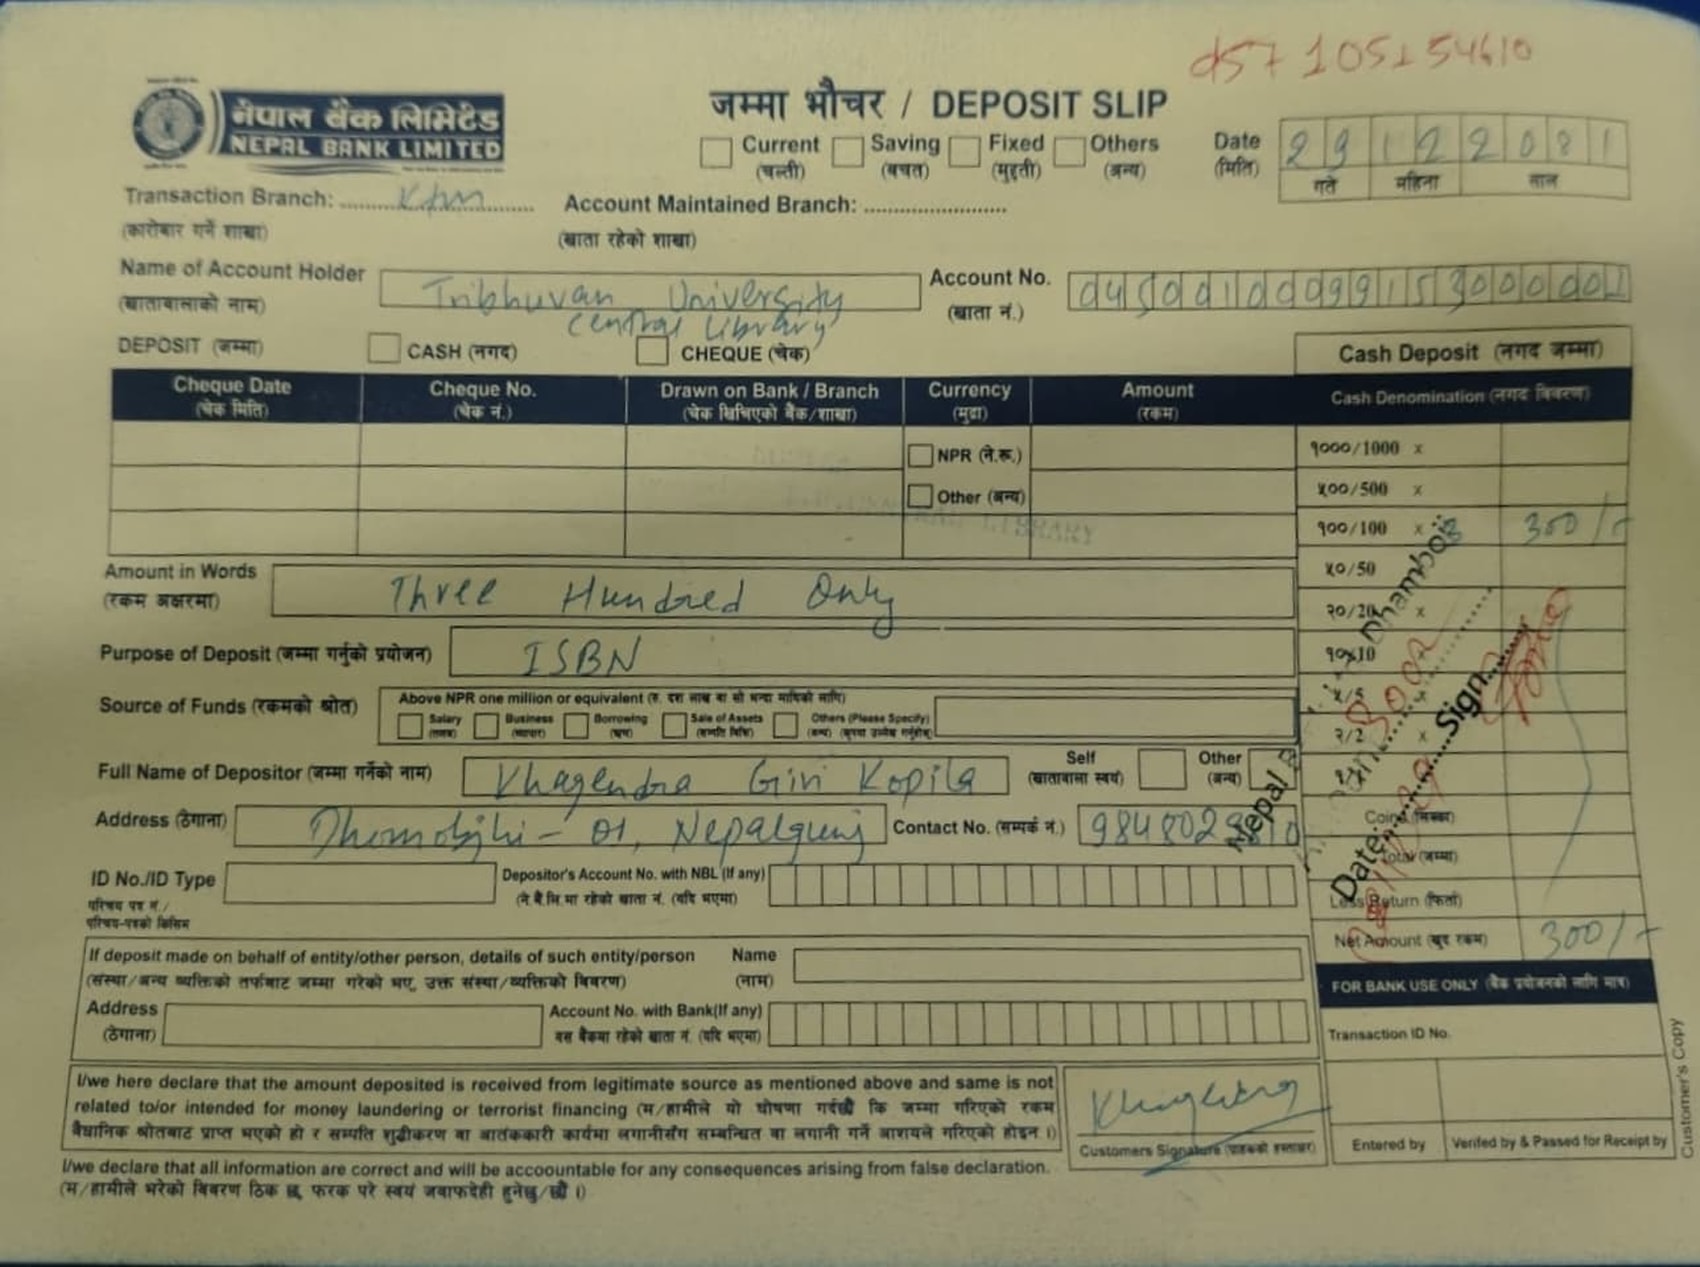 नेपाल बैंक लिमिटेड
NEPAL BANK LIMITED
जम्मा भौचर / DEPOSIT SLIP
Current (चल्ती) Saving (बचत) Fixed (मुद्दती) Others (अन्य)
Date (मिति) 29 12 2081
गते महिना साल
Transaction Branch: Ktm
(कारोबार गर्ने शाखा)
Account Maintained Branch:
(खाता रहेको शाखा)
Name of Account Holder
(खातावालाको नाम)
Tribhuvan University
Central Library
Account No.
(खाता नं.)
DEPOSIT (जम्मा) CASH (नगद) CHEQUE (चेक)
Cash Deposit (नगद जम्मा)
Cheque Date (चेक मिति) Cheque No. (चेक नं.) Drawn on Bank / Branch (चेक खिचिएको बैंक/शाखा) Currency (मुद्रा) Amount (रकम)
Cash Denomination (नगद विवरण)
NPR (ने.रू.)
Other (अन्य)
LIBRARY
१०००/1000 x
५००/500 x
१००/100 x 300/-
५०/50
२०/20 x
१०x10
५/5
२/2 x
Amount in Words
(रकम अक्षरमा)
Three Hundred Only
Purpose of Deposit (जम्मा गर्नुको प्रयोजन) ISBN
Source of Funds (रकमको श्रोत)
Above NPR one million or equivalent (रु. दश लाख वा सो भन्दा माथिको लागि)
Salary Business Borrowing Sale of Assets Others (Please Specify)
Full Name of Depositor (जम्मा गर्नेको नाम) Khagendra Giri Kopila
Self (खातावाला स्वयं) Other (अन्य)
Address (ठेगाना) Dhomobjhi - 01, Nepalgunj
Contact No. (सम्पर्क नं.)
Nepal
Dhambojhi
Date: Sign
Coins (सिक्का)
Total (जम्मा)
Less Return (फिर्ता)
Net Amount (खुद रकम) 300/-
ID No./ID Type
परिचय पत्र नं./
परिचय-पत्रको किसिम
Depositor's Account No. with NBL (If any)
(ने.बैं.लि.मा रहेको खाता नं. (यदि भएमा)
If deposit made on behalf of entity/other person, details of such entity/person
(संस्था/अन्य व्यक्तिको तर्फबाट जम्मा गरेको भए, उक्त संस्था/व्यक्तिको विवरण)
Name
(नाम)
Address
(ठेगाना)
Account No. with Bank(If any)
यस बैंकमा रहेको खाता नं. (यदि भएमा)
FOR BANK USE ONLY (बैंक प्रयोजनको लागि मात्र)
Transaction ID No.
Entered by Verifed by & Passed for Receipt by
I/we here declare that the amount deposited is received from legitimate source as mentioned above and same is not
related to/or intended for money laundering or terrorist financing (म/हामीले यो घोषणा गर्दछौं कि जम्मा गरिएको रकम
बैधानिक श्रोतबाट प्राप्त भएको हो र सम्पति शुद्धीकरण वा आतंककारी कार्यमा लगानीसँग सम्बन्धित वा लगानी गर्ने आशयले गरिएको होइन ।)
Customers Signature (ग्राहकको हस्ताक्षर)
I/we declare that all information are correct and will be accoountable for any consequences arising from false declaration.
(म/हामीले भरेको विवरण ठिक छ, फरक परे स्वयं जवाफदेही हुनेछु/छौं ।)
Customer's Copy